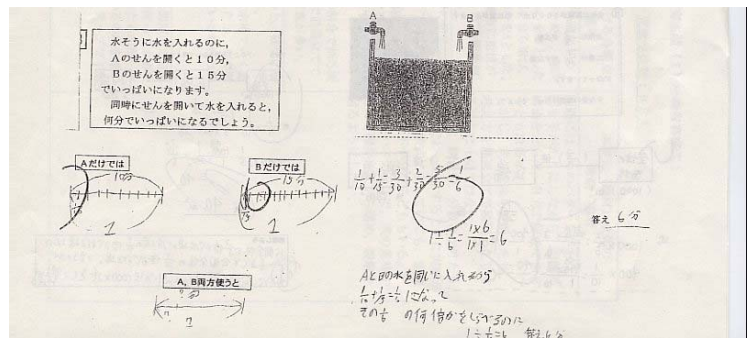 水そうに水を入れるのに,
Aのせんを開くと10分,
Bのせんを開くと15分
でいっぱいになります。
同時にせんを開いて水を入れると,
何分でいっぱいになるでしょう。
A
B
Aだけでは
10分
1
Bだけでは
15分
1
A, B両方使うと
?分
1
1/10+1/15=3/30+2/30=5/30=1/6
1÷1/6=1×6/1×1=6
答え 6分
AとBの水を同じに入れるから
1/10+1/15=1/6になって
その1/6の何倍かをしらべるのに
1÷1/6=6 答え6分